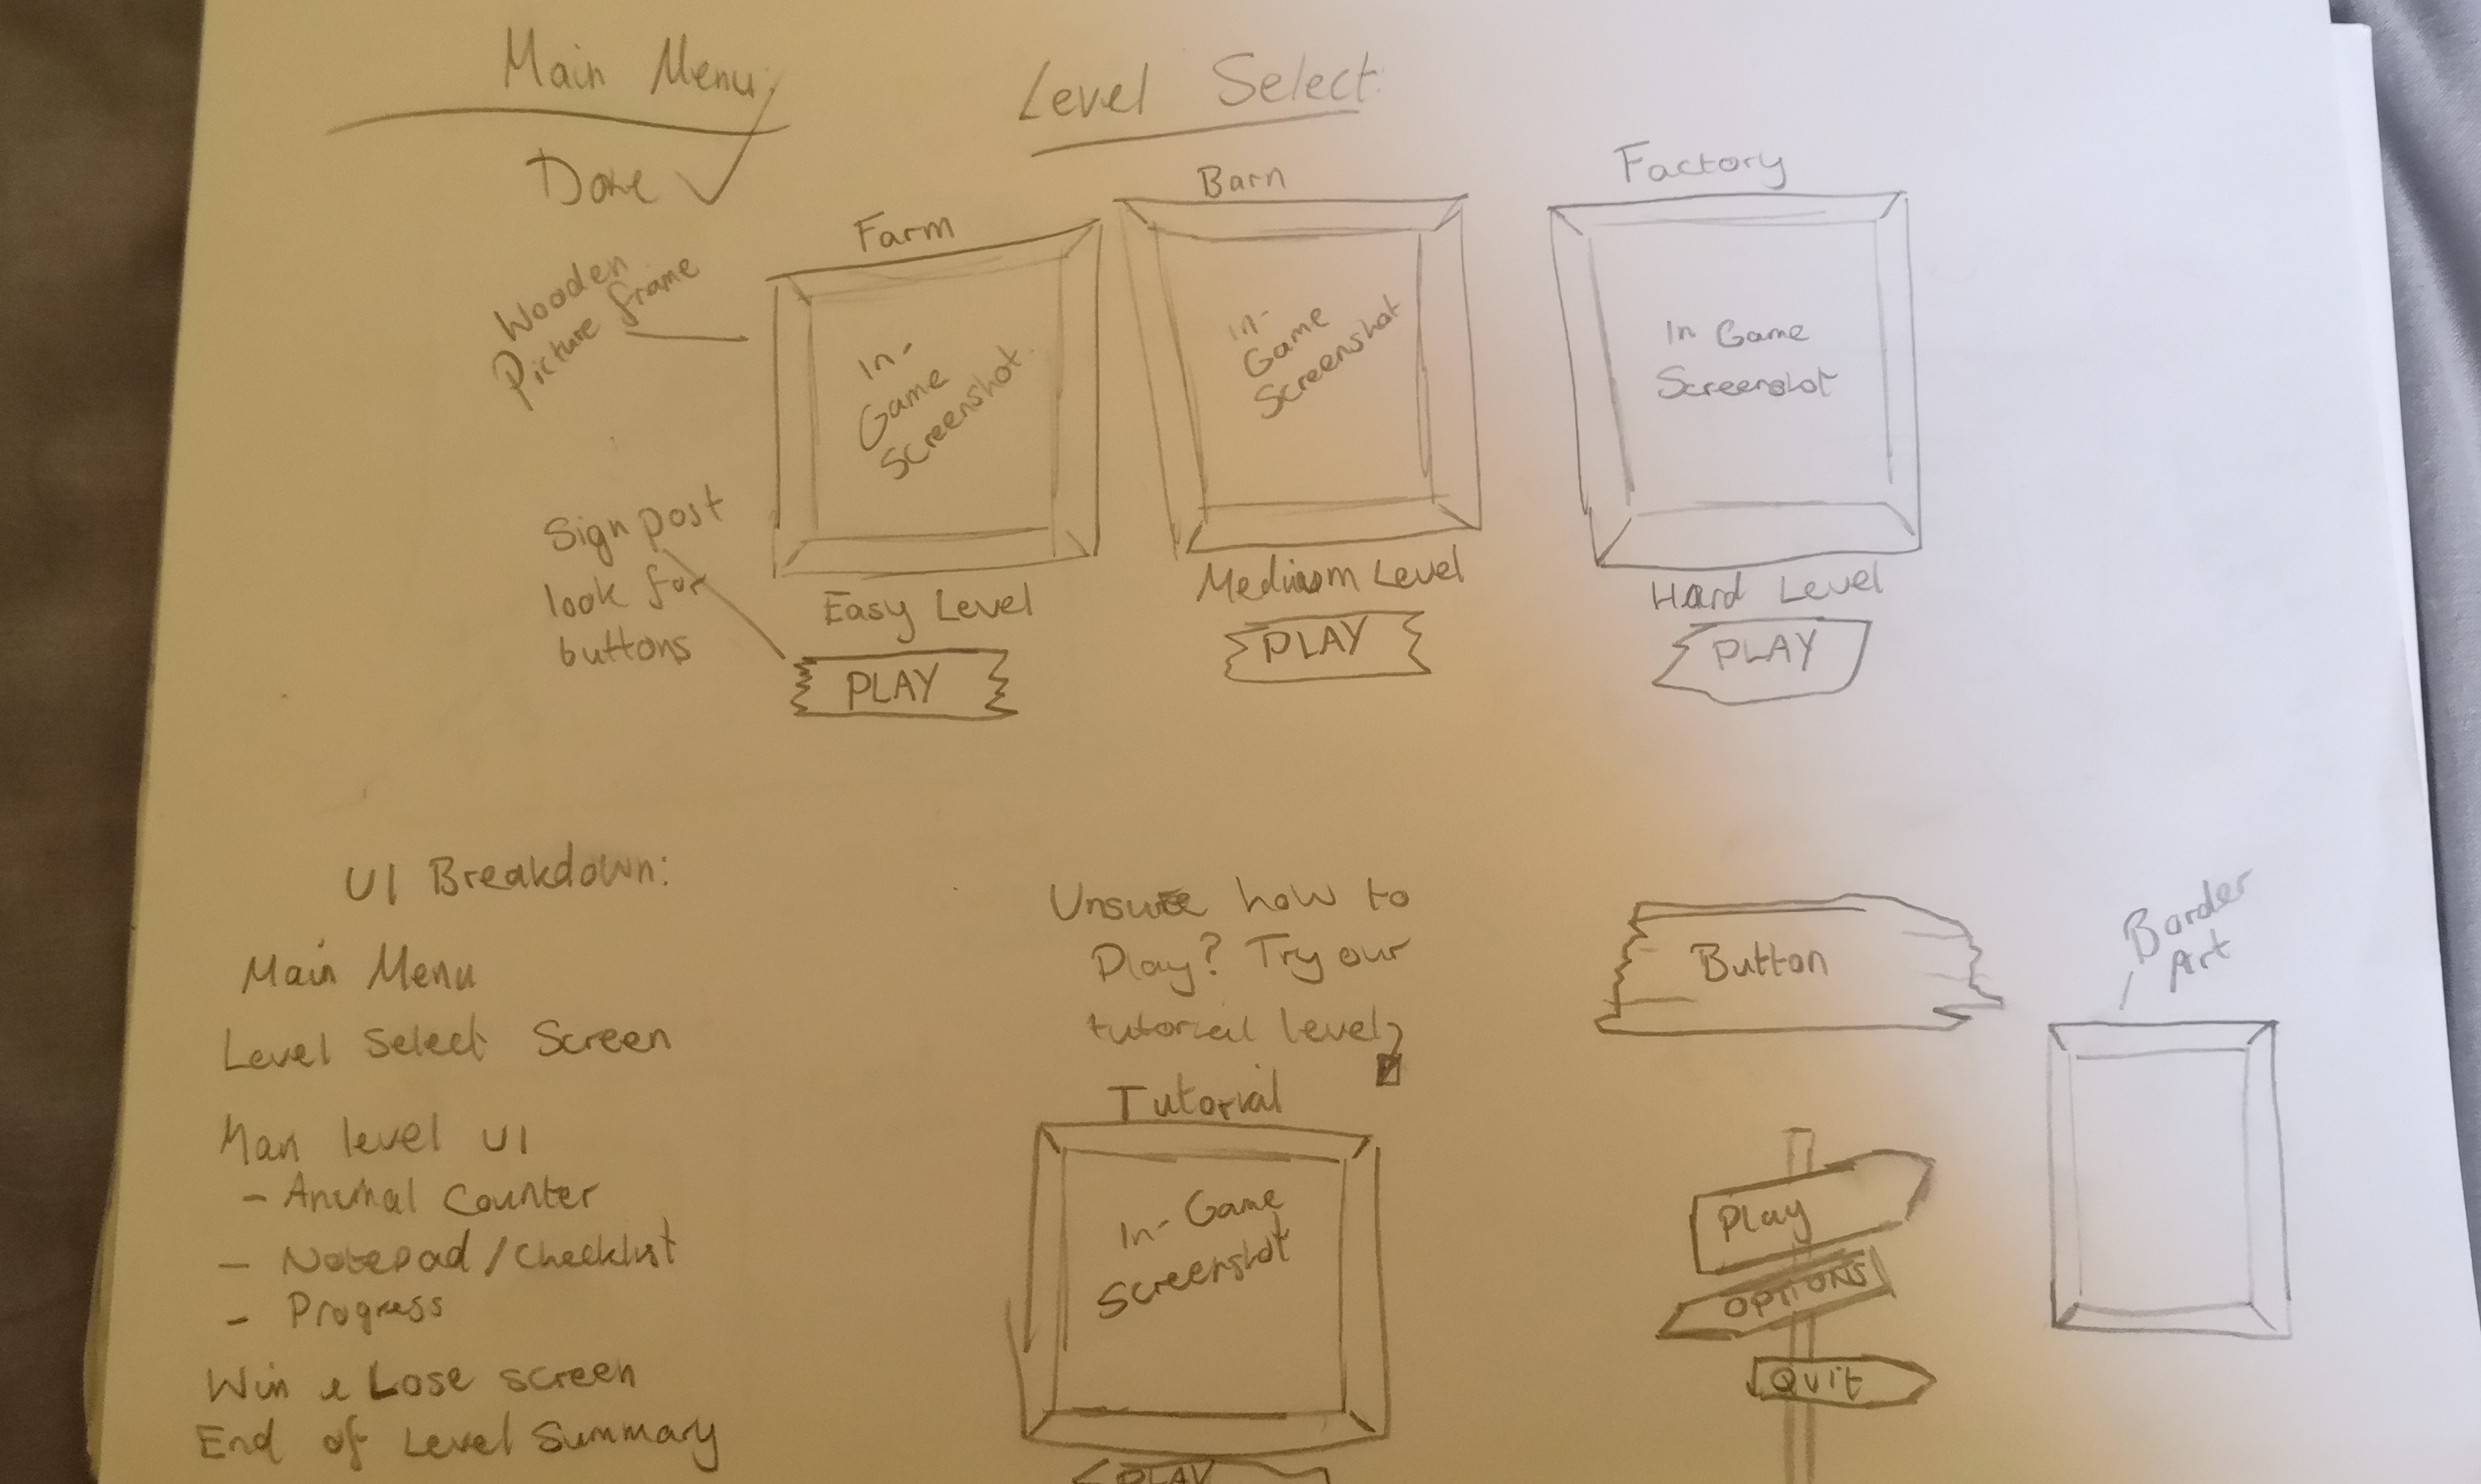 Main Menu
Done ✓
Level Select:
Wooden
Picture frame
Farm
In-
Game
Screenshot
Easy Level
PLAY
Barn
In-
Game
Screenshot
Medium Level
PLAY
Factory
In Game
Screenshot
Hard Level
PLAY
Sign post
look for
buttons
UI Breakdown:
Main Menu
Level Select Screen
Man level UI
- Animal Counter
- Notepad/Checklist
- Progress
Win & Lose screen
End of Level Summary
Unsure how to
Play? Try our
tutorial level
Tutorial
In-Game
Screenshot
PLAY
Button
Border
Art
Play
OPTIONS
Quit